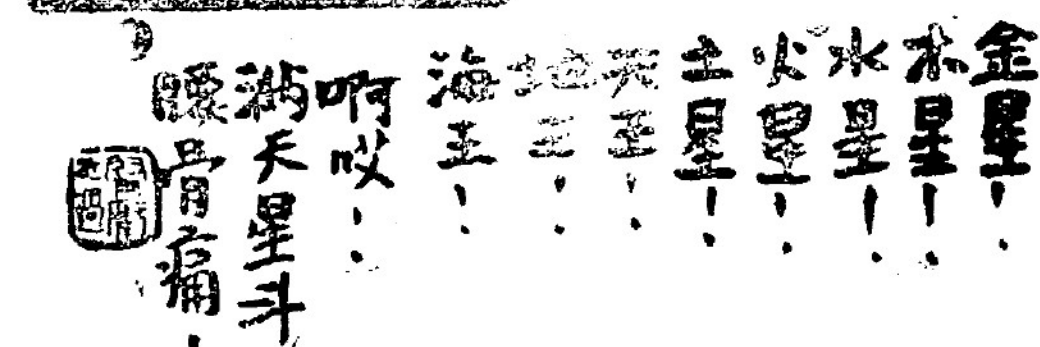 金星！
木星！
水星！
火星！
土星！
天王！
地王！
海王！
啊哎！
满天星斗
腰骨痛！